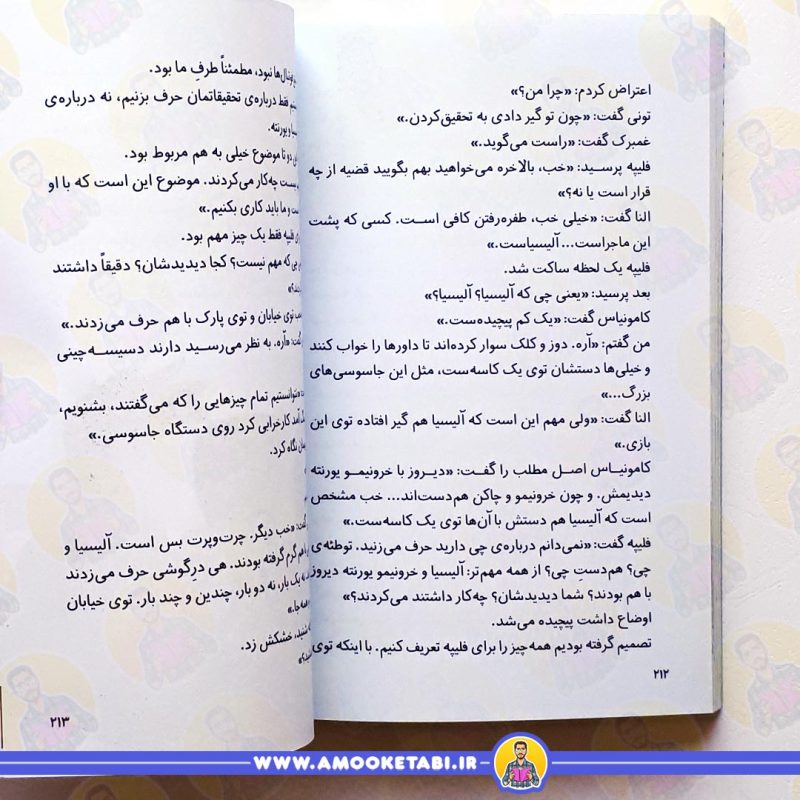 اعتراض کردم: «چرا من؟»
تونی گفت: «چون تو گیر دادی به تحقیق‌کردن.»
غمبرک گفت: «راست می‌گوید.»
فلیپه پرسید: «خب، بالاخره می‌خواهید بهم بگویید قضیه از چه
قرار است یا نه؟»
النا گفت: «خیلی خب، طفره‌رفتن کافی است. کسی که پشت
این ماجراست... آلیسیاست.»
فلیپه یک لحظه ساکت شد.
بعد پرسید: «یعنی چی که آلیسیا؟ آلیسیا؟»
کامونیاس گفت: «یک کم پیچیده‌ست.»
من گفتم: «آره. دوز و کلک سوار کرده‌اند تا داورها را خواب کنند
و خیلی‌ها دستشان توی یک کاسه‌ست، مثل این جاسوسی‌های
بزرگ...»
النا گفت: «ولی مهم این است که آلیسیا هم گیر افتاده توی این
بازی.»
کامونیاس اصل مطلب را گفت: «دیروز با خرونیمو یورنته
دیدیمش. و چون خرونیمو و چاکن هم‌دست‌اند... خب مشخص
است که آلیسیا هم دستش با آن‌ها توی یک کاسه‌ست.»
فلیپه گفت: «نمی‌دانم درباره‌ی چی دارید حرف می‌زنید. توطئه‌ی
چی؟ هم‌دستِ چی؟ از همه مهم‌تر: آلیسیا و خرونیمو یورنته دیروز
با هم بودند؟ شما دیدیدشان؟ چه‌کار داشتند می‌کردند؟»
اوضاع داشت پیچیده می‌شد.
تصمیم گرفته بودیم همه‌چیز را برای فلیپه تعریف کنیم. با اینکه توی
۲۱۲
نبود، مطمئناً طرفِ ما بود.
فقط درباره‌ی تحقیقاتمان حرف بزنیم، نه درباره‌ی
و یورنته.
دو تا موضوع خیلی به هم مربوط بود.
چه‌کار می‌کردند. موضوع این است که با او
و ما باید کاری بکنیم.»
فلیپه فقط یک چیز مهم بود.
چی که مهم نیست؟ کجا دیدیدشان؟ دقیقاً داشتند
توی خیابان و توی پارک با هم حرف می‌زدند.»
«آره. به نظر می‌رسید دارند دسیسه‌چینی
تمام چیزهایی را که می‌گفتند، بشنویم،
آمد کارخرابی کرد روی دستگاه جاسوسی.»
نگاه کرد.
«خب دیگر. چرت‌وپرت بس است. آلیسیا و
هم گرم گرفته بودند. هی درِگوشی حرف می‌زدند
نه یک بار، نه دو بار، چندین و چند بار. توی خیابان
خشکش زد.
۲۱۳
WWW.AMOOKETABI.IR